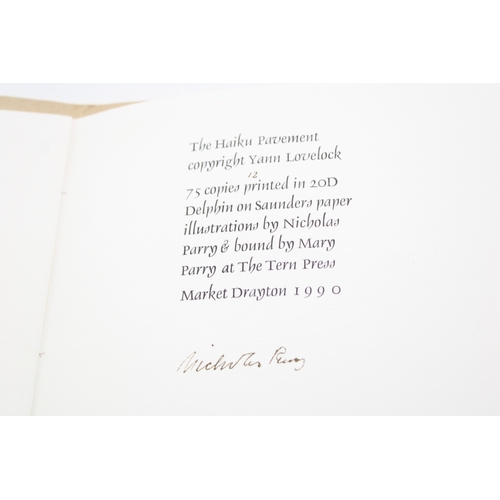 The Haiku Pavement
copyright Yann Lovelock
12
75 copies printed in 20D
Delphin on Saunders paper
illustrations by Nicholas
Parry & bound by Mary
Parry at The Tern Press
Market Drayton 1990
Nicholas Parry